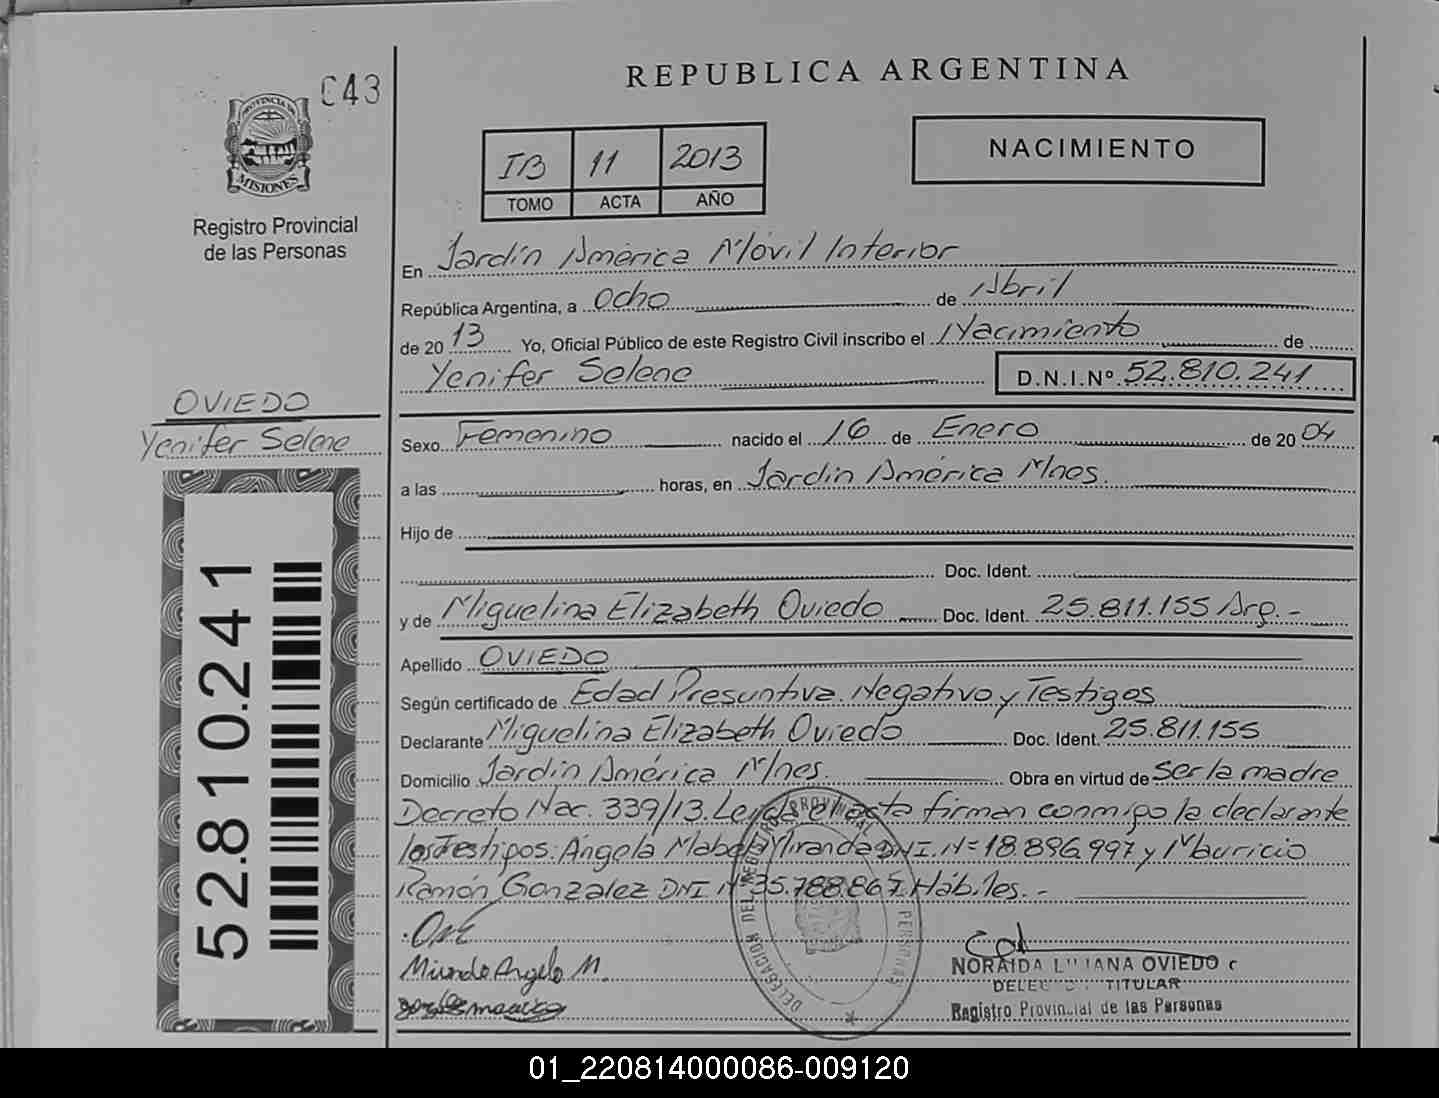 C43
PROVINCIA DE
MISIONES
Registro Provincial
de las Personas
REPUBLICA ARGENTINA
IB 11 2013
TOMO ACTA AÑO
NACIMIENTO
En Jardín América Móvil Interior
República Argentina, a Ocho de Abril
de 2013 Yo, Oficial Público de este Registro Civil inscribo el Nacimiento de
Yenifer Selene D.N.I.Nº 52.810.241
OVIEDO
Yenifer Selene
52.810.241
Sexo Femenino nacido el 16 de Enero de 2004
a las horas, en Jardín América Mnes.
Hijo de
Doc. Ident.
y de Miguelina Elizabeth Oviedo Doc. Ident. 25.811.155 Arg.-
Apellido OVIEDO
Según certificado de Edad Presuntiva. Negativo y Testigos
Declarante Miguelina Elizabeth Oviedo Doc. Ident. 25.811.155
Domicilio Jardín América Mnes. Obra en virtud de Ser la madre
Decreto Nac. 339/13. Leída el acta firman conmigo la declarante
los Testigos: Angela Mabel Miranda DNI. Nº 18.896.997 y Mauricio
Ramón Gonzalez DNI Nº 35.788.867. Hábiles.-
Miranda Angela M.
DELEGACION DEL REGISTRO PROVINCIAL PERSONAS
NORAIDA LILIANA OVIEDO
TITULAR
Registro Provincial de las Personas
01_220814000086-009120